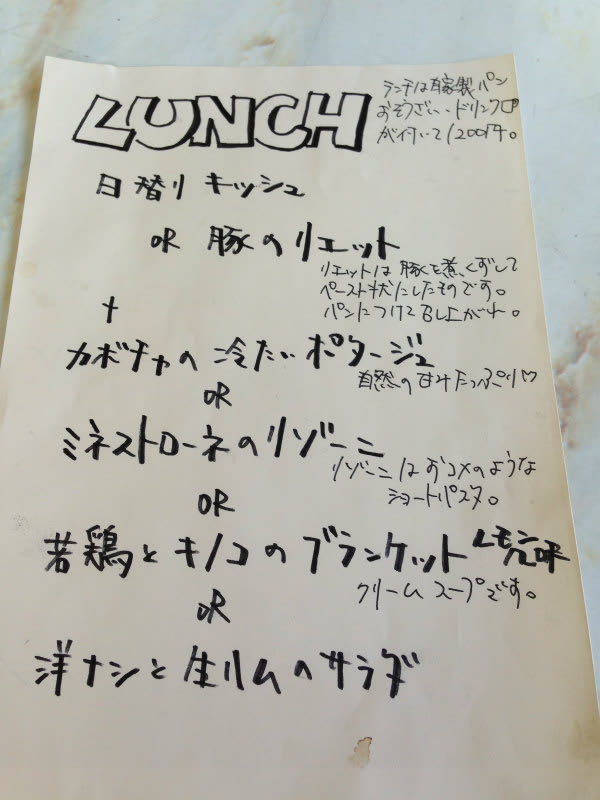 LUNCH
ランチは自家製パン
おそうざい、ドリンク
が付いて1200円。
日替り キッシュ
OR 豚のリエット
リエットは豚を煮くずして
ペースト状にしたものです。
パンにつけて召し上がれ。
+
カボチャの冷たいポタージュ
自然の甘みたっぷり♡
OR
ミネストローネのリゾーニ
リゾーニはおコメのような
ショートパスタ。
OR
若鶏とキノコのブランケット レモン風味
クリームスープです。
OR
洋ナシと生ハムのサラダ